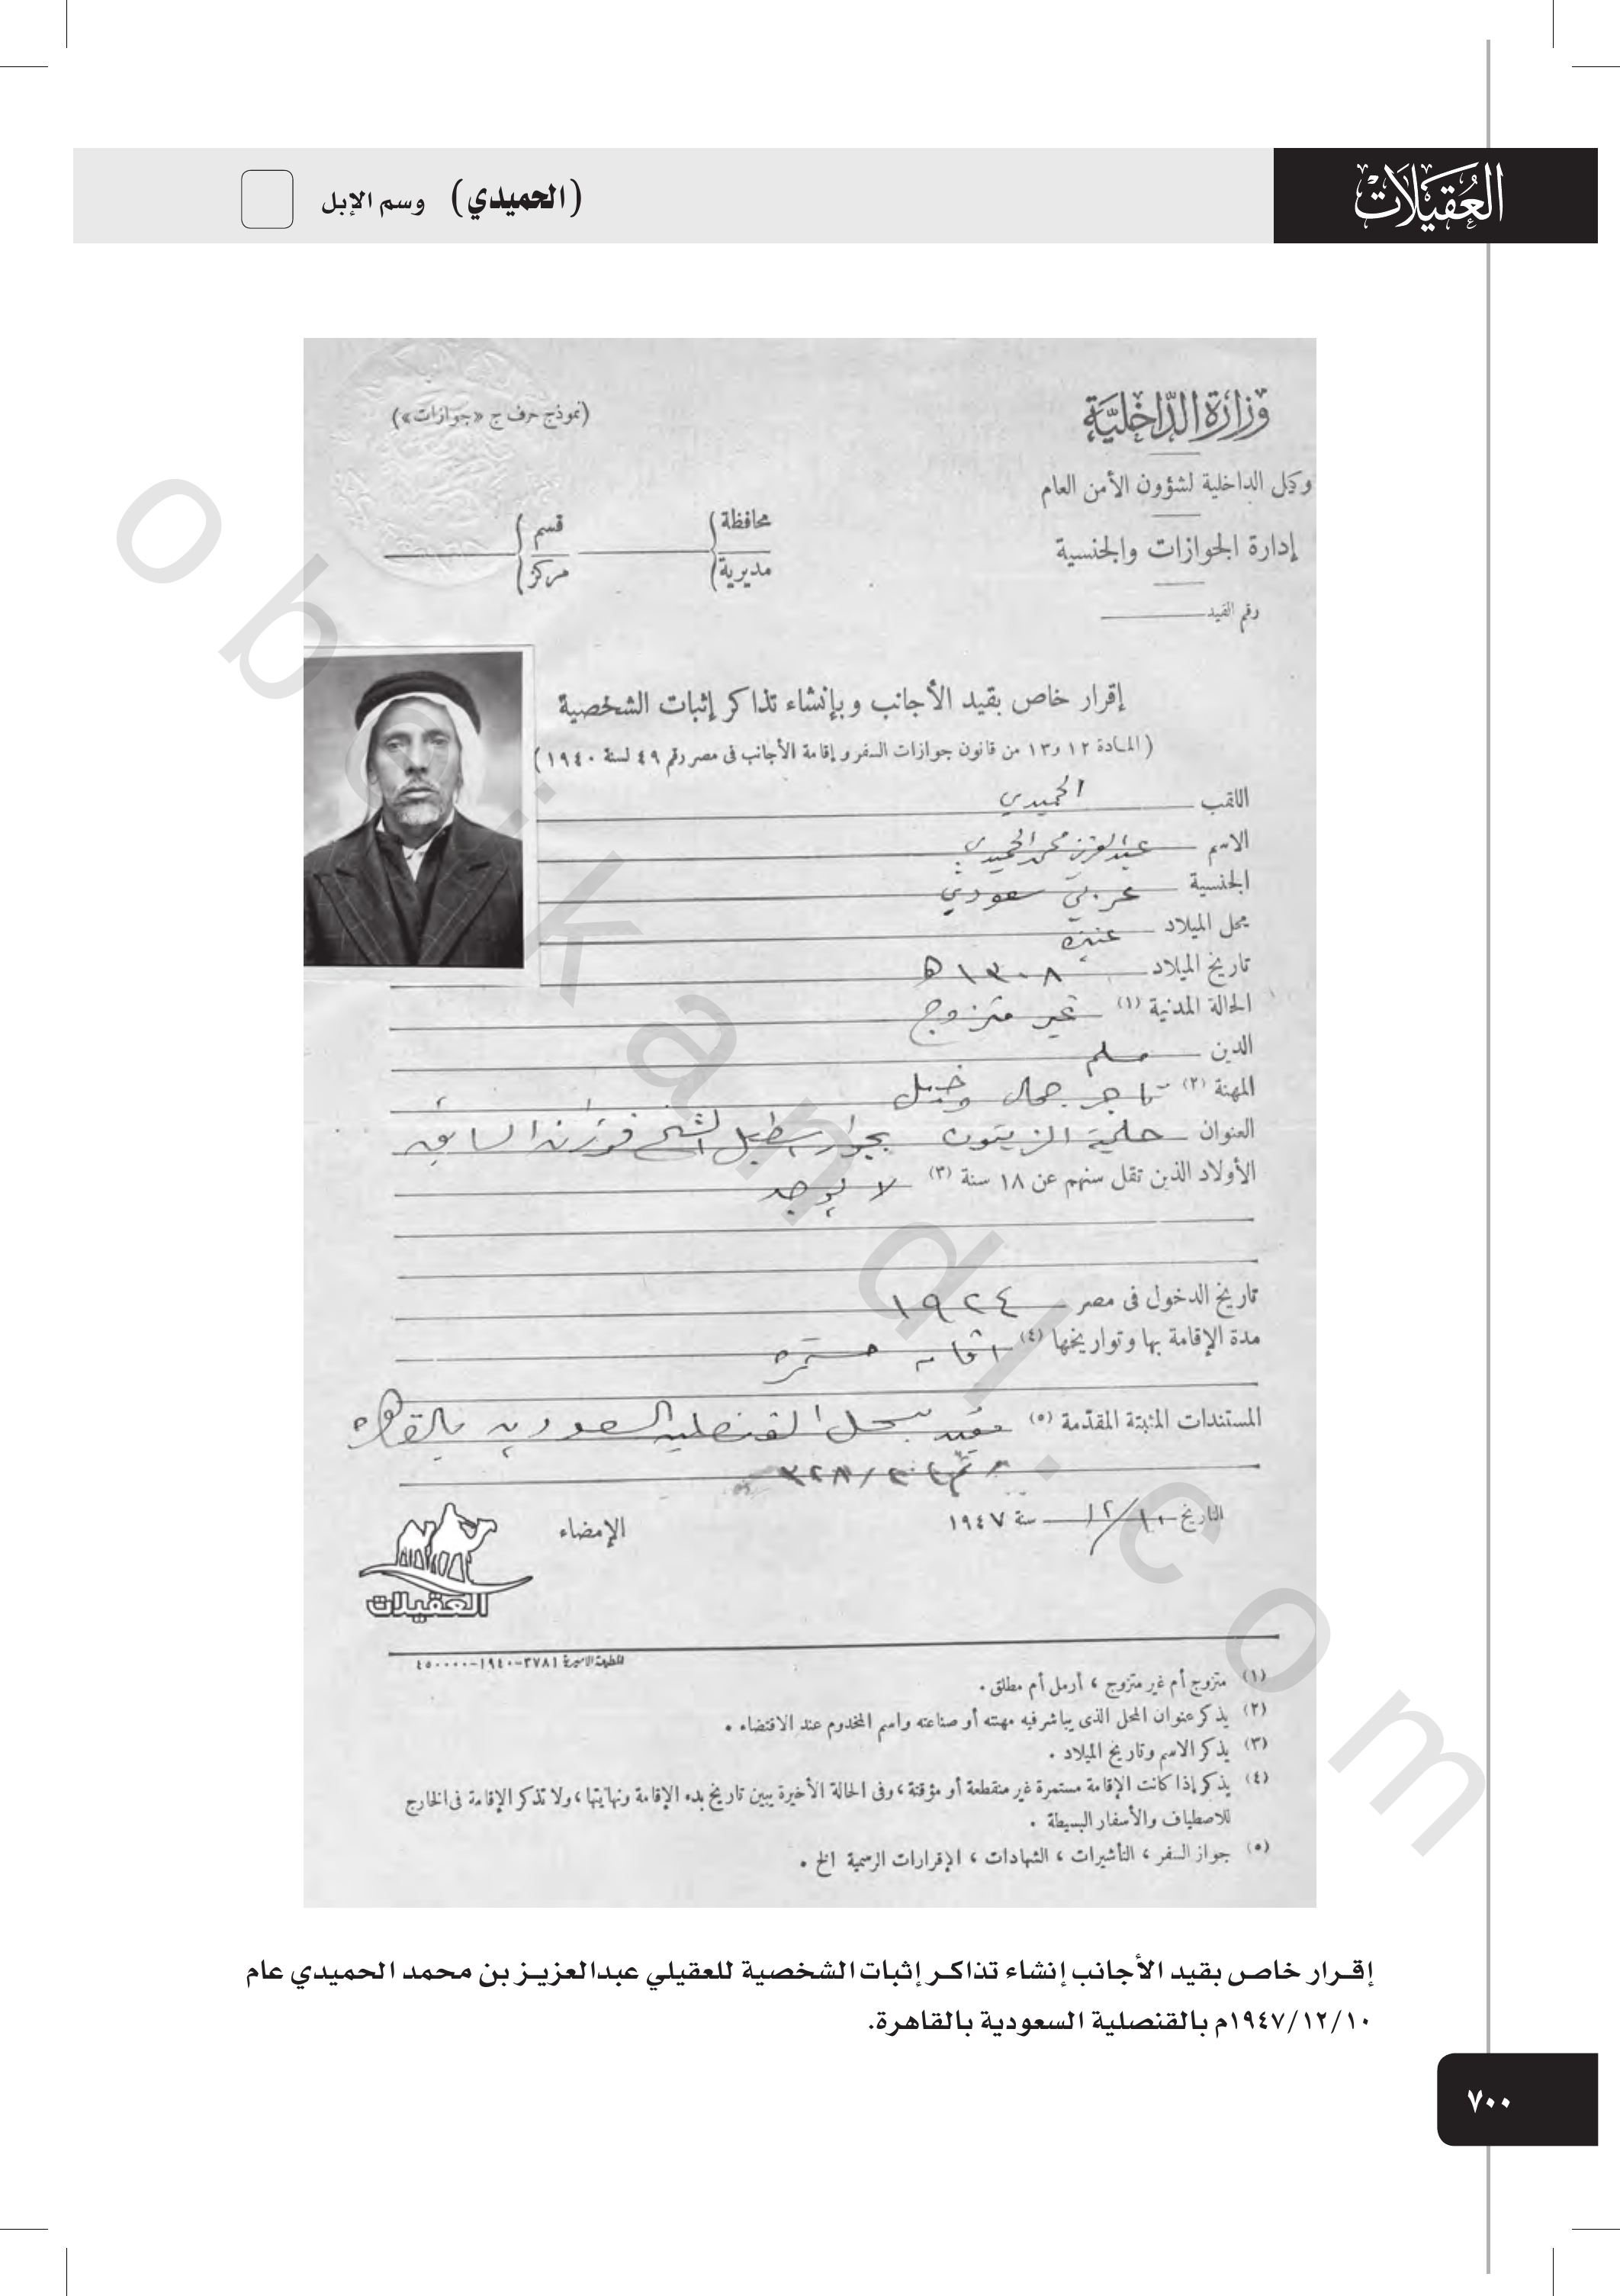 العُقَيلات
(الحميدي) وسم الإبل
وزارة الداخلية
(نموذج حرف ج «جوازات»)
وكيل الداخلية لشؤون الأمن العام
محافظة
مديرية
قسم
مركز
إدارة الجوازات والجنسية
رقم القيد
إقرار خاص بقيد الأجانب وبإنشاء تذاكر إثبات الشخصية
(المادة ١٢ و١٣ من قانون جوازات السفر وإقامة الأجانب فى مصر رقم ٤٩ لسنة ١٩٤٠)
اللقب الحميدي
الاسم عبدالعزيز محمد الحميدي
الجنسية عربي سعودي
محل الميلاد عنيزه
تاريخ الميلاد ١٣٠٨ ه
الحالة المدنية (١) غير متزوج
الدين مسلم
المهنة (٢) تاجر جمال وخيل
العنوان حلمية الزيتون بجوار اسطبل الشيخ فوزان السابق
الأولاد الذين تقل سنهم عن ١٨ سنة (٣) لا يوجد
تاريخ الدخول فى مصر ١٩٢٤
مدة الإقامة بها وتواريخها (٤) اقامه مستمره
المستندات المثبتة المقدّمة (٥) مقيد بسجل القنصليه السعوديه بالقاهره
التاريخ ١٢/١٠ سنة ١٩٤٧
الإمضاء
العقيلات
المطبعة الاميرية ٣٧٨١-١٩٤٠-٤٥٠٠٠٠
(١) متزوج أم غير متزوج ، أرمل أم مطلق .
(٢) يذكر عنوان المحل الذى يباشر فيه مهنته أو صناعته واسم المخدوم عند الاقتضاء .
(٣) يذكر الاسم وتاريخ الميلاد .
(٤) يذكر إذا كانت الإقامة مستمرة غير منقطعة أو مؤقتة ، وفى الحالة الأخيرة يبين تاريخ بدء الإقامة ونهايتها ، ولا تذكر الإقامة فى الخارج
للاصطياف والأسفار البسيطة .
(٥) جواز السفر ، التأشيرات ، الشهادات ، الإقرارات الرسمية الخ .
إقـرار خاص بقيد الأجانب إنشاء تذاكـر إثبات الشخصية للعقيلي عبدالعزيـز بن محمد الحميدي عام
١٩٤٧/١٢/١٠م بالقنصلية السعودية بالقاهرة.
٧٠٠
obeikandl.com